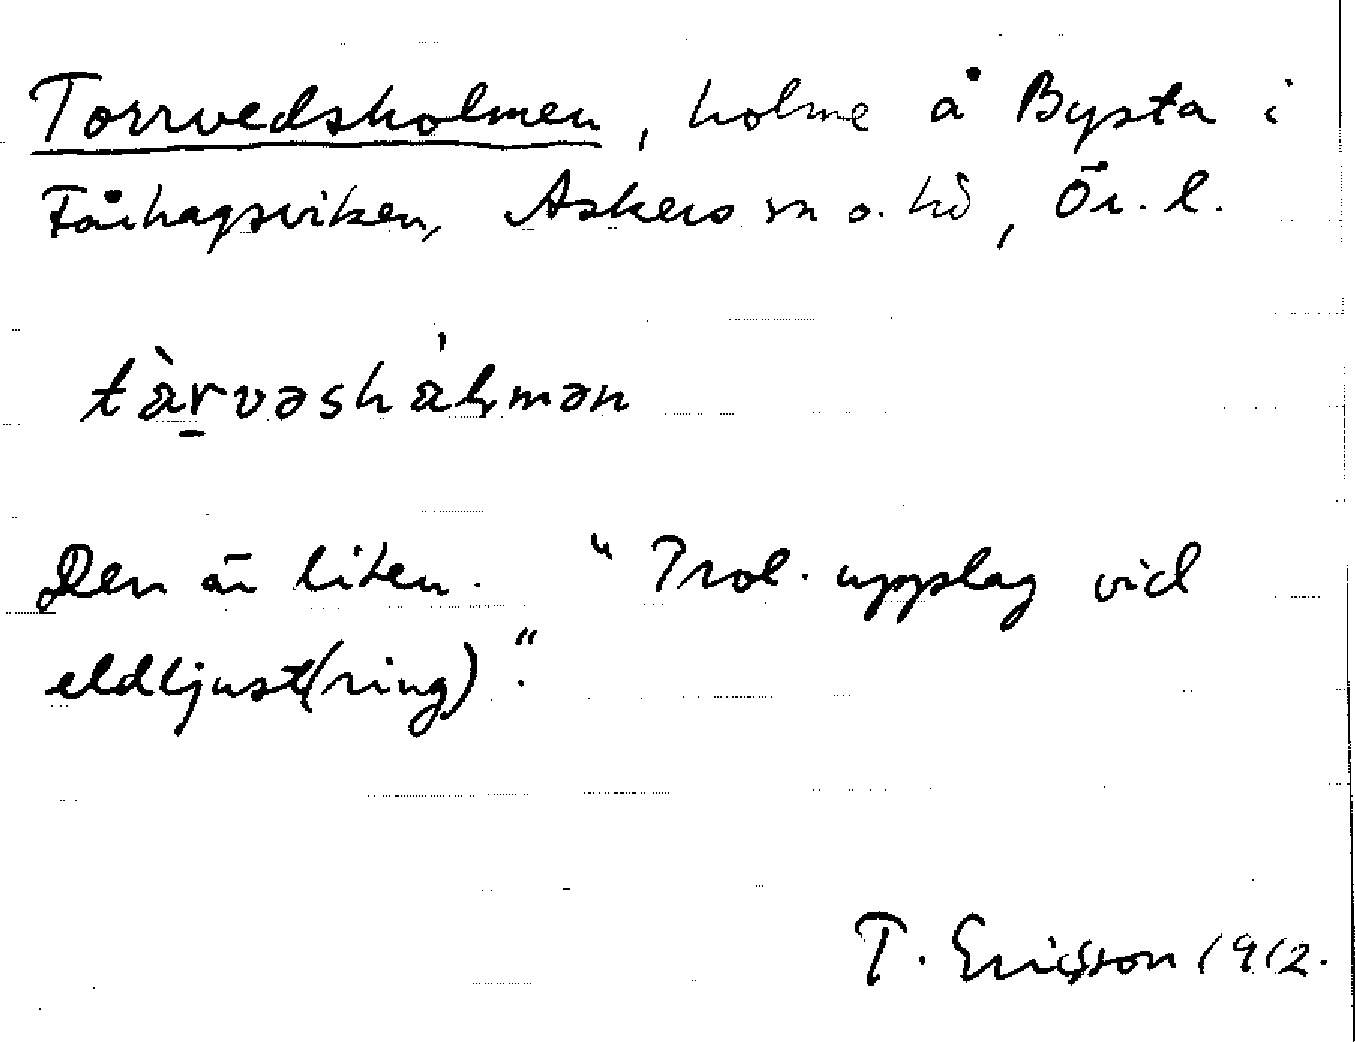 Torrvedsholmen, holme å Bysta i
Fårhagsviken, Askers sn o. hd, Ör. l.
tàrvəshálmən
Den är liten. "Trol. upplag vid
eldljust(ring)."
T. Ericsson 1912.